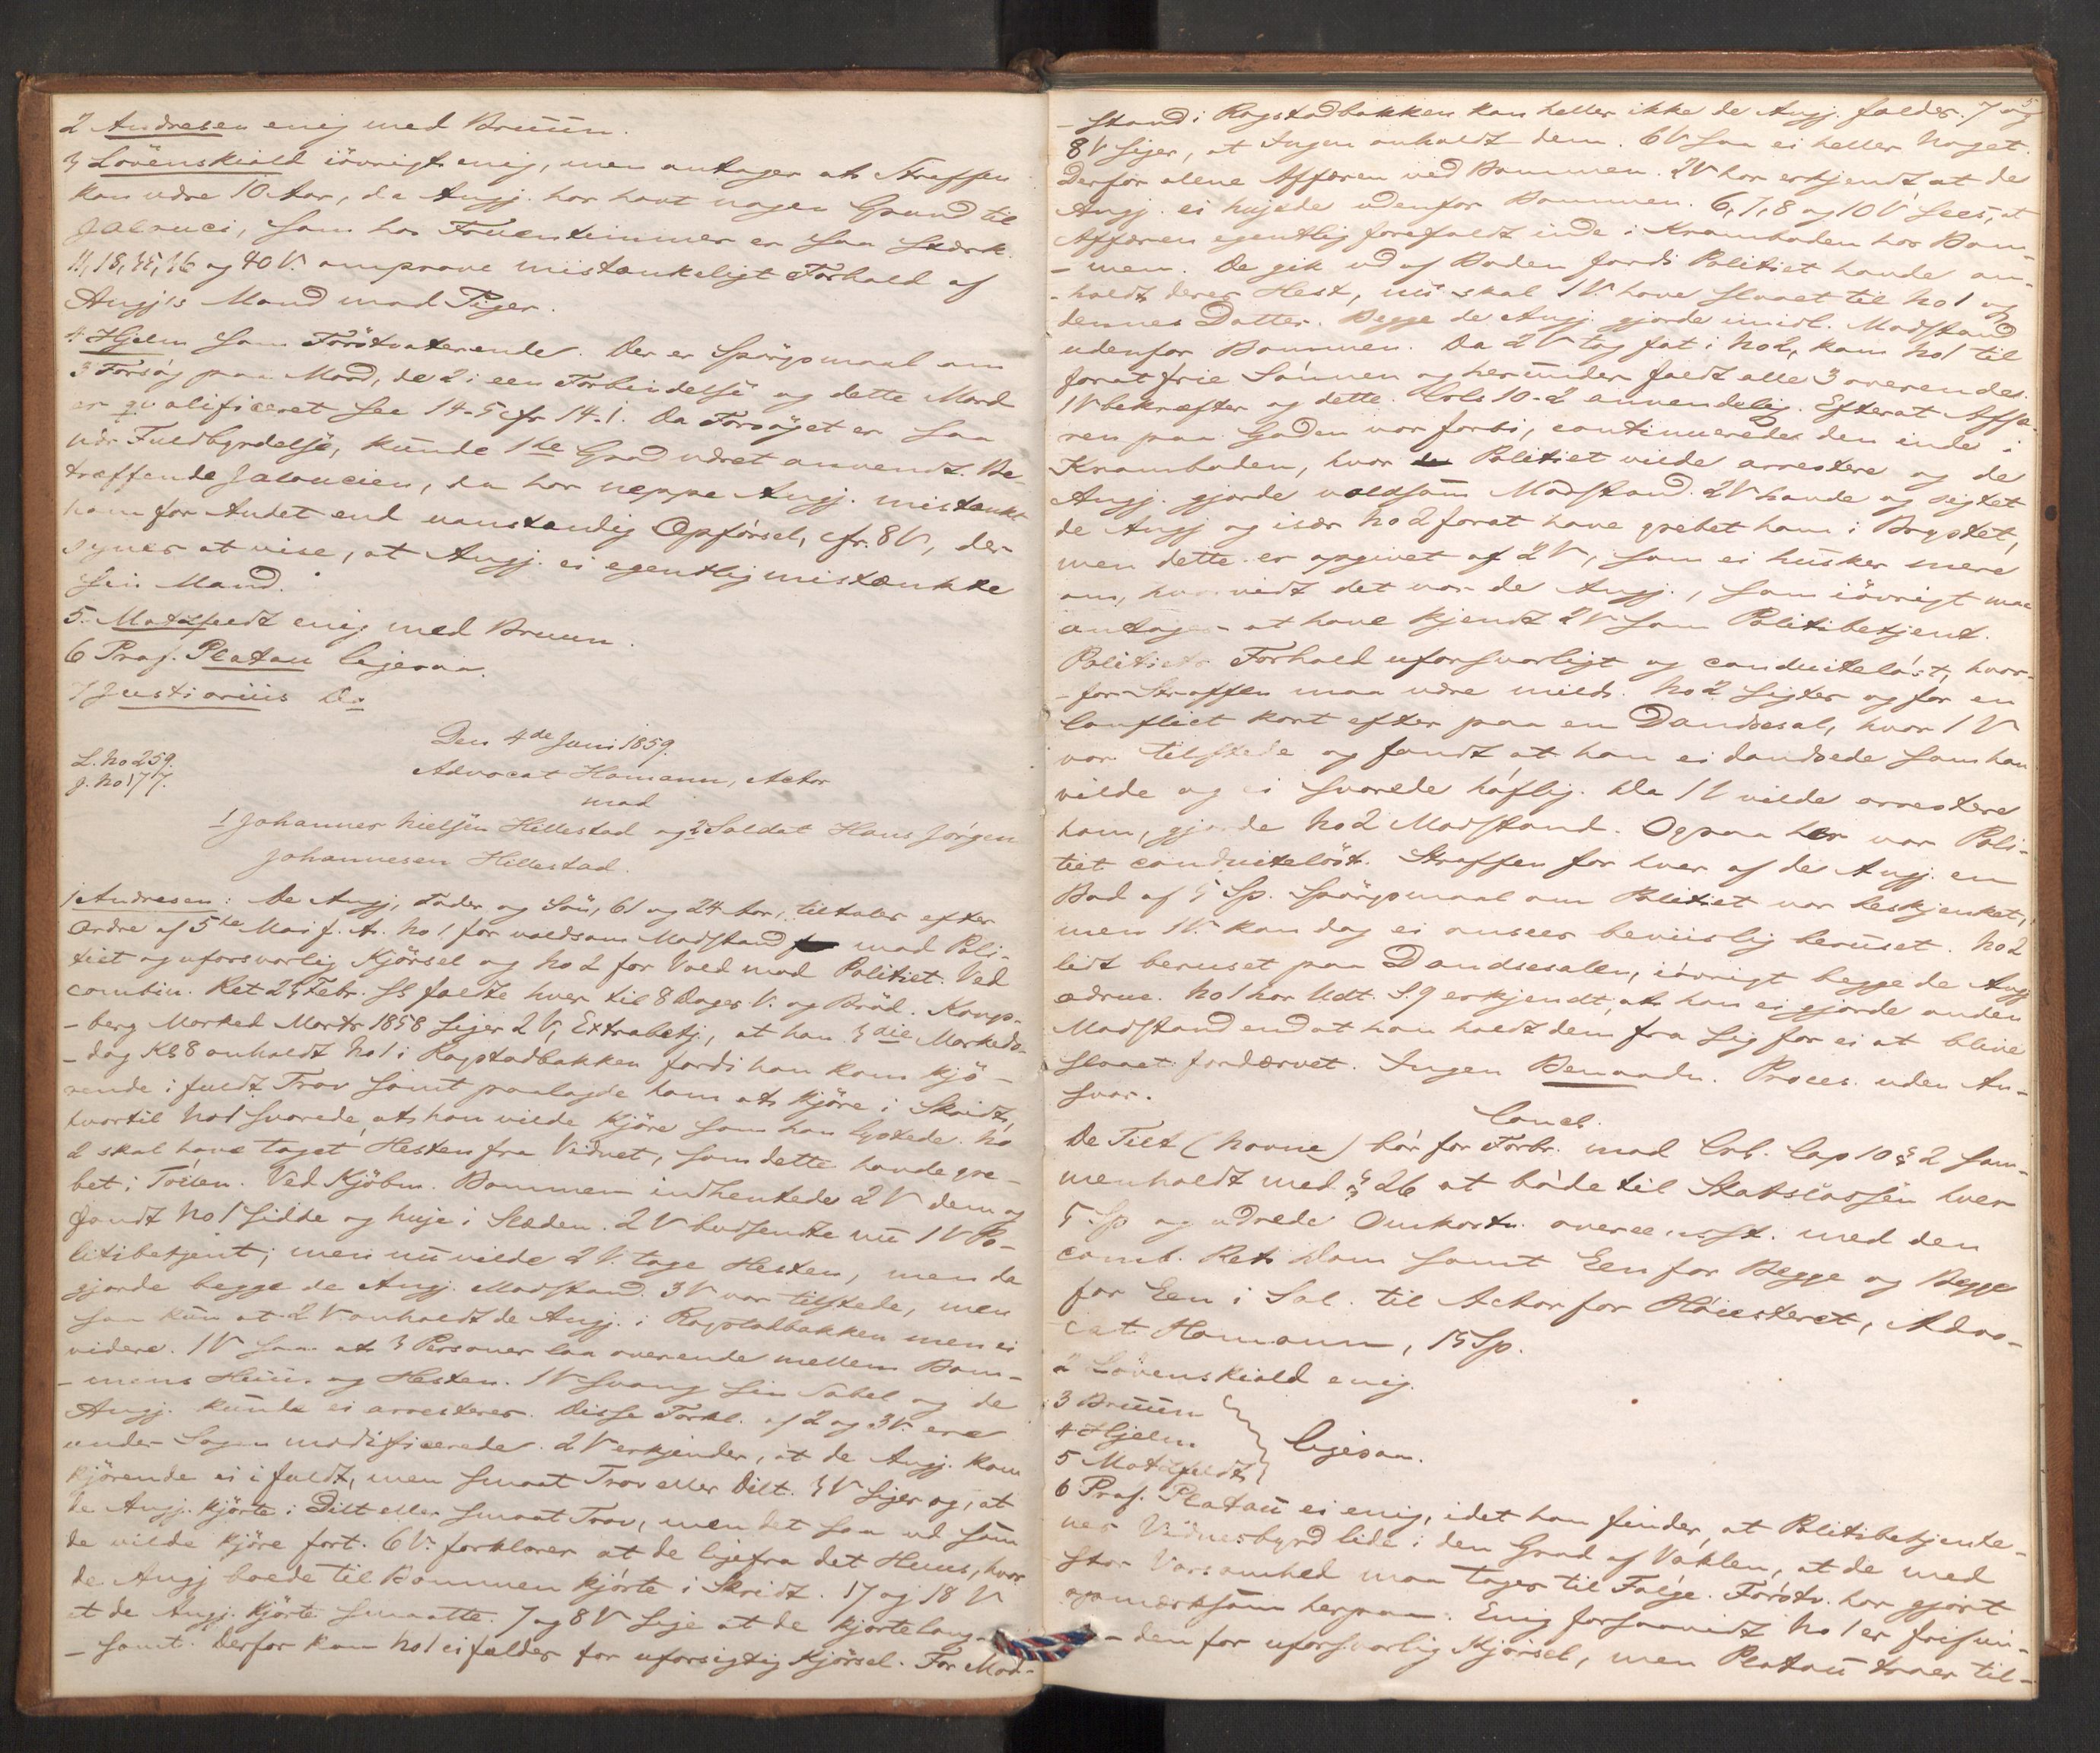 2 Andresen enig med Bruun.
3 Lövenskiold iövrigt enig, men antager at Straffen
kan være 10 Aar, da Angj. har havt nogen Grund til
Jalouci, som hos Fruentimmer er saa stærk.
11, 18, 35, 36 og 40 V. omprove mistænkeligt Forhold af
Angj's Mand mod Piger.
4 Hjelm som Förstvoterende. Der er Spörgsmaal om
3 Forsög paa Mord, de 2 i een Forbindelse og dette Mord
er qvalificeret see 14-5 cfr 14-1. Da Forsöget er saa
nær Fuldbyrdelse, kunde 1ste Grad været anvendt. Be-
træffende Jaloucien, da har neppe Angj. mistænkt
ham for Andet end uanstændig Opförsel, cfr. 8 V, der
synes at vise, at Angj. ei egentlig mistænkte
sin Mand.
5. Motzfeldt enig med Bruun.
6 Prof. Platou ligesaa.
7 Justiarius Do
Den 4de Juni 1859.
L. No 259.
J. No 177.
Advocat Homann, Actor
mod
1 Johannes Nielsen Hillestad og 2 Soldat Hans Jörgen
Johannesen Hillestad.
1 Andresen: De Angj., Fader og Sön, 61 og 24 Aar, tiltales efter
Ordre af 5te Mai f. A. No 1 for voldsom Modstand mod Poli-
tiet og uforsvarlig Kjörsel og No 2 for Vold mod Politiet. Ved
combin. Ret 25 Febr. ds fældte hver til 8 Dages V. og Bröd. Kongs-
-berg Marked Marts 1858 siger 2 V, Extrabetj., at han 3die Markeds-
-dag Kl 8 anholdt No 1 i Ragstadbakken fordi han kom kjö-
rende i fuldt Trav samt paalagde ham at kjöre i Skridt,
hvortil No 1 svarede, at han vilde kjöre som han lystede. No
2 skal have taget Hesten fra Vidnet, som dette havde gre-
bet i Töilen. Ved Kjöbm. Bommen indhentede 2 V dem og
fandt No 1 sidde og huje i Slæden. 2 V budsendte nu 1 V Po-
litibetjent; men nu vilde 2 V. tage Hesten, men da
gjorde begge de Angj. Modstand. 3 V var tilstede, men
saa kun at 2 V anholdt de Angj. i Ragstadbakken men ei
videre. 1 V saa at 3 Personer laa overende mellem Bom-
-mens Huus og Hesten. 1 V svang sin Sabel og de
Angj. kunde ei arresteres. Disse Forkl. af 2 og 3 V. ere
under Sagen modificerede. 2 V erkjender, at de Angj. kom
kjörende ei i fuldt, men smaat Trav eller Dilt. 3 V siger og, at
de Angj. kjörte i Dilt eller smaat Trav, men det saa ud som
de vilde kjöre fort. 6 V. forklarer at de ligefra det Huus, hvor
de Angj boede til Bommen kjörte i Skridt. 17 og 18 V
at de Angj. kjörte smaatte. 7 og 8 V sige at de kjörte lang-
-somt. Derfor kan No 1 ei fældes for uforsigtig Kjörsel. For Mod-
-stand i Ragstadbakken kan heller ikke de Angj. fældes. 7 og
8 V siger, at Ingen anholdt dem. 6 V saa ei heller Noget.
Derfor alene Affæren ved Bommen. 2 V har erkjendt at de
Angj. ei hujede udenfor Bommen. 6, 7, 8 og 10 V sees, at
Affæren egentlig forefaldt inde i Kramboden hos Bom-
-men. De gik ud af Boden fordi Politiet havde an-
-holdt deres Hest, nu skal 1 V. have slaaet til No 1 og
dennes Datter. Begge de Angj. gjorde imidl. Modstand
udenfor Bommen. Da 2 V tog fat i No 2, kom No 1 til
forat frie Sönnen og herunder faldt alle 3 overendes.
1 V bekræfter og dette. Crls 10-2 anvendelig. Efterat Affæ-
ren paa Gaden var forbi, continueredes den inde i
Kramboden, hvor Politiet vilde arrestere og de
Angj. gjorde voldsom Modstand. 2 V havde og sigtet
de Angj og især No 2 forat have grebet ham i Brystet,
men dette er opgivet af 2 V, som ei husker mere
om, hvorvidt det var de Angj., som iövrigt maa
antages at have kjendt 2 V som Politibetjent.
Politiets Forhold uforsvarligt og conduitelöst, hvor-
-for Straffen maa være mild. No 2 sigtes og for en
Conflict kort efter paa en Dandsesal, hvor 1 V
var tilstede og fandt at han ei dandsede som han
vilde og ei svarede höflig. Da 1 V vilde arrestere
ham, gjorde No 2 Modstand. Ogsaa her var Poli-
tiet conduitelöst. Straffen for hver af de Angj. en
Bod af 5 Sp. Spörgsmaal om Politiet var beskjenket,
men 1 V. kan dog ei ansees beviislig beruset. No 2
lidt beruset paa Dandsesalen, iövrigt begge de Angj
ædrue. No 1 har Udt. S. 9 erkjendt, at han ei gjorde anden
Modstand end at han holdt dem fra sig for ei at blive
slaaet fordærvet. Ingen Benaadn. Proces. uden An-
svar.
Concl.
De Tilt (Navne) bör for Forbr. mod Crl. Cap 10 § 2 sam-
menholdt med § 26 at böde til Statscassen hver
5 Sp og udrede Omkostn. overeensst. med den
comb. Rets Dom samt Een for Begge og Begge
for Een i Sal. til Actor for Höiesteret, Advo-
cat Homann, 15 Sp.
2 Lövenskiold enig.
3 Bruun
4 Hjelm
5 Motzfeldt
ligesaa.
6 Prof. Platou ei enig, idet han finder, at Politibetjente-
nes Vidnesbyrd lide i den Grad af Vaklen, at de med
stor Varsomhed maa tages til Fölge. Förstv. har gjort
opmærksom herpaa. Enig forsaavidt No 1 er frifun-
-den for uforsvarlig Kjörsel, men Platou troer til-